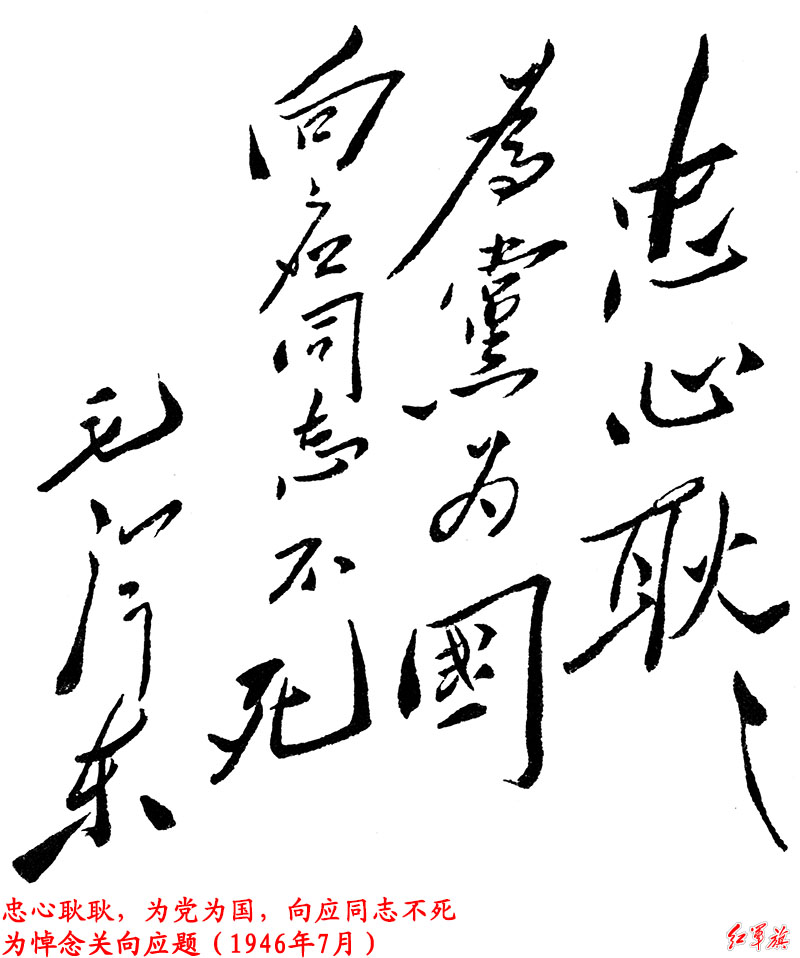 忠心耿〻
為黨为國
向应同志不死
毛泽东
忠心耿耿，为党为国，向应同志不死
为悼念关向应题（1946年7月）
红军旗